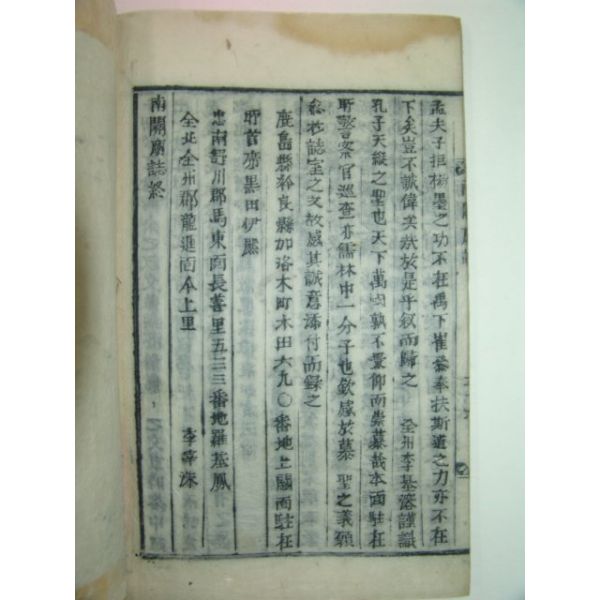 孟夫子拒楊墨之功不在禹下崔參奉扶斯道之力亦不在
下矣豈不誠偉矣哉於是乎叙而歸之 全州李基溶謹識
孔子天縱之聖也天下萬國孰不景仰而崇慕哉本面駐在
所警察官巡査亦儒林中一分子也欽感於慕 聖之義願
忝於誌室之文故感其誠意添付而録之
鹿島縣 良縣加洛木町木田六九〇番地上關面駐在
所首席黒田伊熊
忠南舒川郡馬東面長善里五三三番地羅基鳳
全北全州郡龍進面 上里 李 深
南關廟誌終
南關廟誌